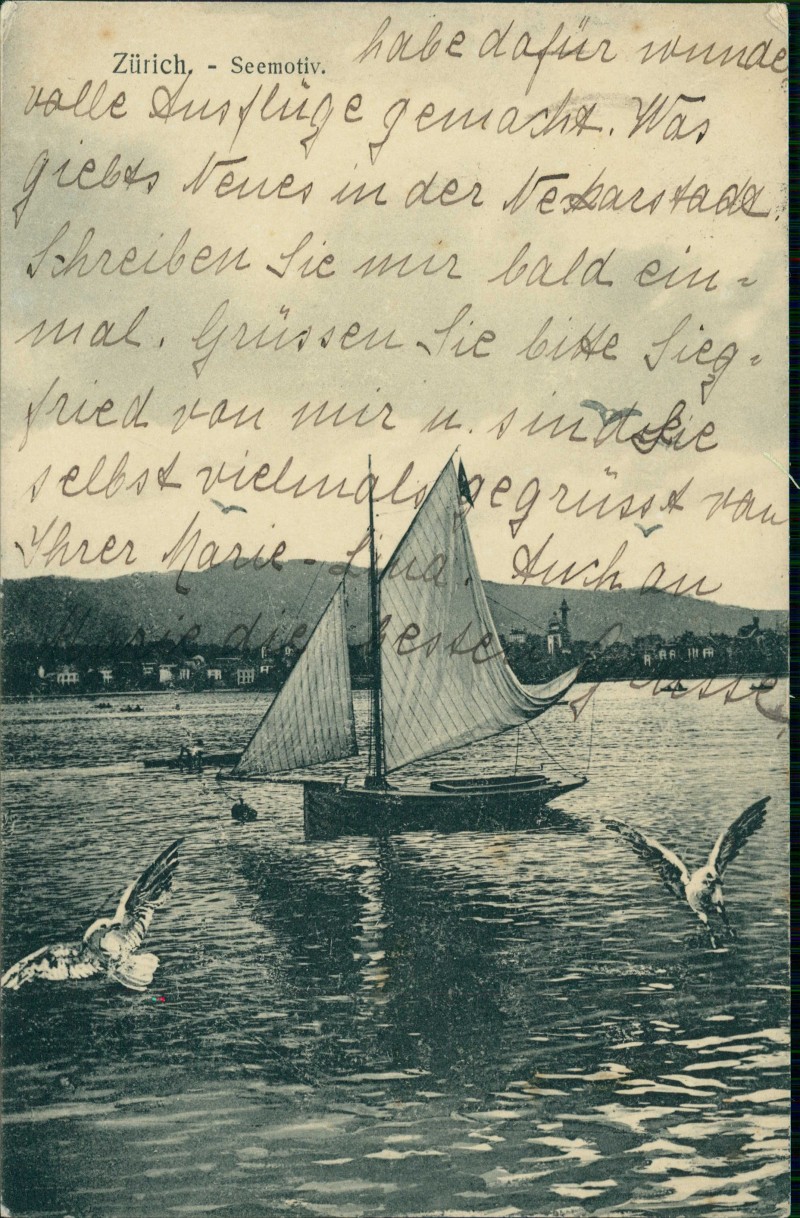 Zürich. - Seemotiv.
habe dafür wunde
volle Ausflüge gemacht. Was
giebts Neues in der Neckarstadt.
Schreiben Sie mir bald ein=
mal. Grüssen Sie bitte Sieg=
fried von mir u. sind Sie
selbst vielmals gegrüsst von
Ihrer Marie-Lina. Auch an
Marie die besten Grüsse